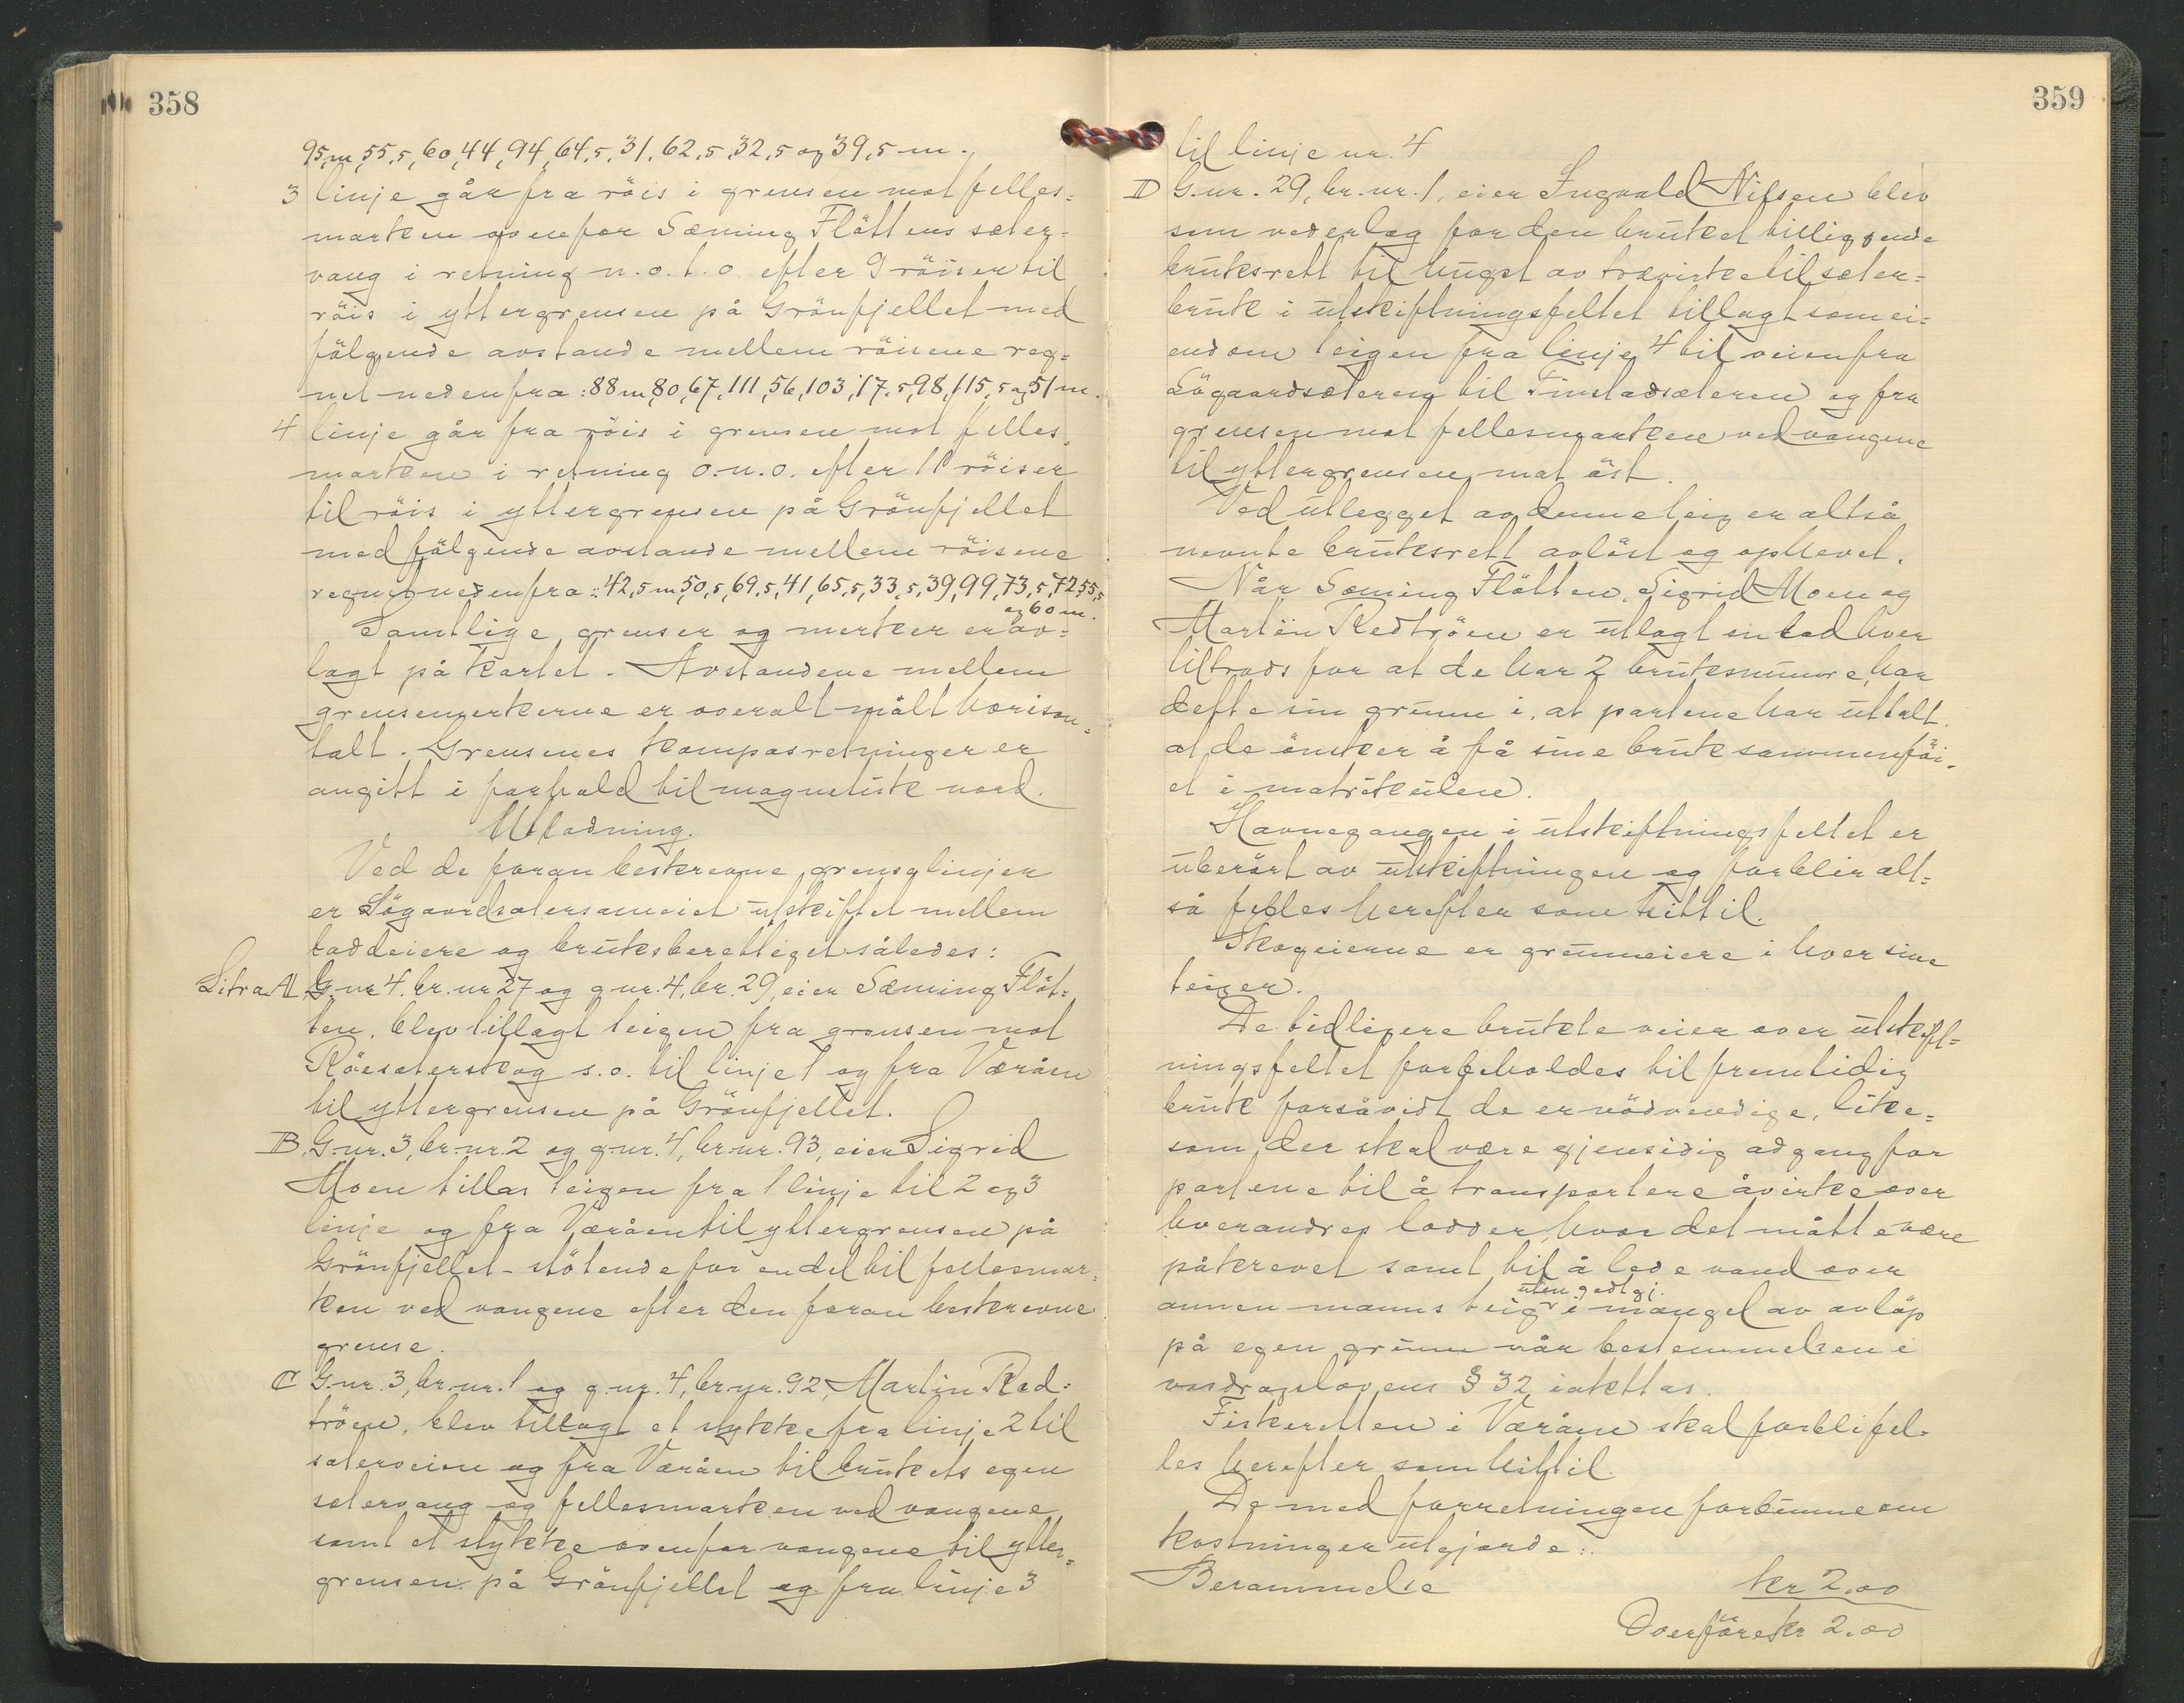 358
95,m 55,5, 60, 44, 94, 64,5, 31, 62,5, 32,5 og 39,5 m.
3 linje går fra röis i grensen mot felles=
marken ovenfor Sæming Flåttens sæter=
vang i retning n.o.t.o. efter 9 röiser til
röis i yttergrensen på Grönfjellet med
fölgende avstande mellem röisene reg=
net nedenfra: 88 m, 80, 67, 111, 56, 103, 17,5, 98, 115,5 og 51 m.
4 linje går fra röis i grensen mot felles=
marken i retning o.n.o. efter 11 röiser
til röis i yttergrensen på Grönfjellet
med fölgende avstande mellem röisene
regnet nedenfra: 42,5 m, 50,5, 69,5, 41, 65,5, 33,5, 39, 99, 73,5, 72, 55,5
og 60 m.
Samtlige grenser og merker er av=
lagt på kartet. Avstandene mellem
grensemerkerne er overalt målt horison=
talt. Grensenes kompasretninger er
angitt i forhold til magnetisk nord.
Utlodning.
Ved de foran beskrevne grenselinjer
er Sögaardsætersameiet utskiftet mellem
loddeiere og bruksberettiget således:
Litra A G.nr 4. br.nr 27 og g.nr. 4, br. 29, eier Sæming Flåt=
ten, blev tillagt teigen fra grensen mot
Röesæterskog s.o. til linje 1 og fra Væråen
til yttergrensen på Grönfjellet.
B. G.nr. 3, br.nr. 2 og g.nr. 4, br.nr. 93, eier Sigrid
Moen tillas teigen fra 1 linje til 2 og 3
linje og fra Væråen til yttergrensen på
Grönfjellet - stötende for en del til fellesmar=
ken ved vangene efter den foran beskrevne
grense.
C G.nr. 3, br.nr. 1 og g.nr. 4, br.nr. 92, Martin Red=
tröen, blev tillagt et stykke fra linje 2 til
sæterveien og fra Væråen til brukets egen
sætervang og fellesmarken ved vangene
samt et stykke ovenfor vangene til ytter=
grensen på Grönfjellet og fra linje 3
359
til linje nr. 4
D G.nr. 29, br.nr. 1, eier Ingvald Nilsen blev
som vederlag for den bruket tilliggende
bruksrett til hugst av trævirke til sæter=
bruk i utskiftningsfeltet tillagt som ei=
endom teigen fra linje 4 til veien fra
Sögaardsæteren til Finstadsæteren og fra
grensen mot fellesmarken ved vangene
til yttergrensen mot öst.
Ved utlegget av denne teig er altså
nevnte bruksrett avlöst og ophevet.
Når Sæming Flåtten, Sigrid Moen og
Martin Redtröen er utlagt en lod hver
tiltrods for at de har 2 bruksnumre, har
dette sin grunn i, at partene har uttalt
at de önsker å få sine bruk sammenföi=
et i matrikulen.
Havnegangen i utskiftningsfeltet er
uberört av utskiftningen og forblir alt=
så felles herefter som hittil.
Skogeierne er grunneiere i hver sine
teiger.
De tidligere brukte veier over utskift=
ningsfeltet forbeholdes til fremtidig
bruk forsåvidt de er nödvendige, like=
som der skal være gjensidig adgang for
partene til å transportere åvirke over
hverandres lodder, hvor det måtte være
påkrevet samt til å lede vand over
uten godtgj.
annen manns teig i mangel av avlöp
på egen grunn når bestemmelsen i
vasdragslovens § 32 iakttas.
Fiskeretten i Væråen skal forbli fel=
les herefter som hittil.
De med forretningen forbunne om
kostninger utgjorde:
Berammelse kr 2.00
Overföres kr 2.00